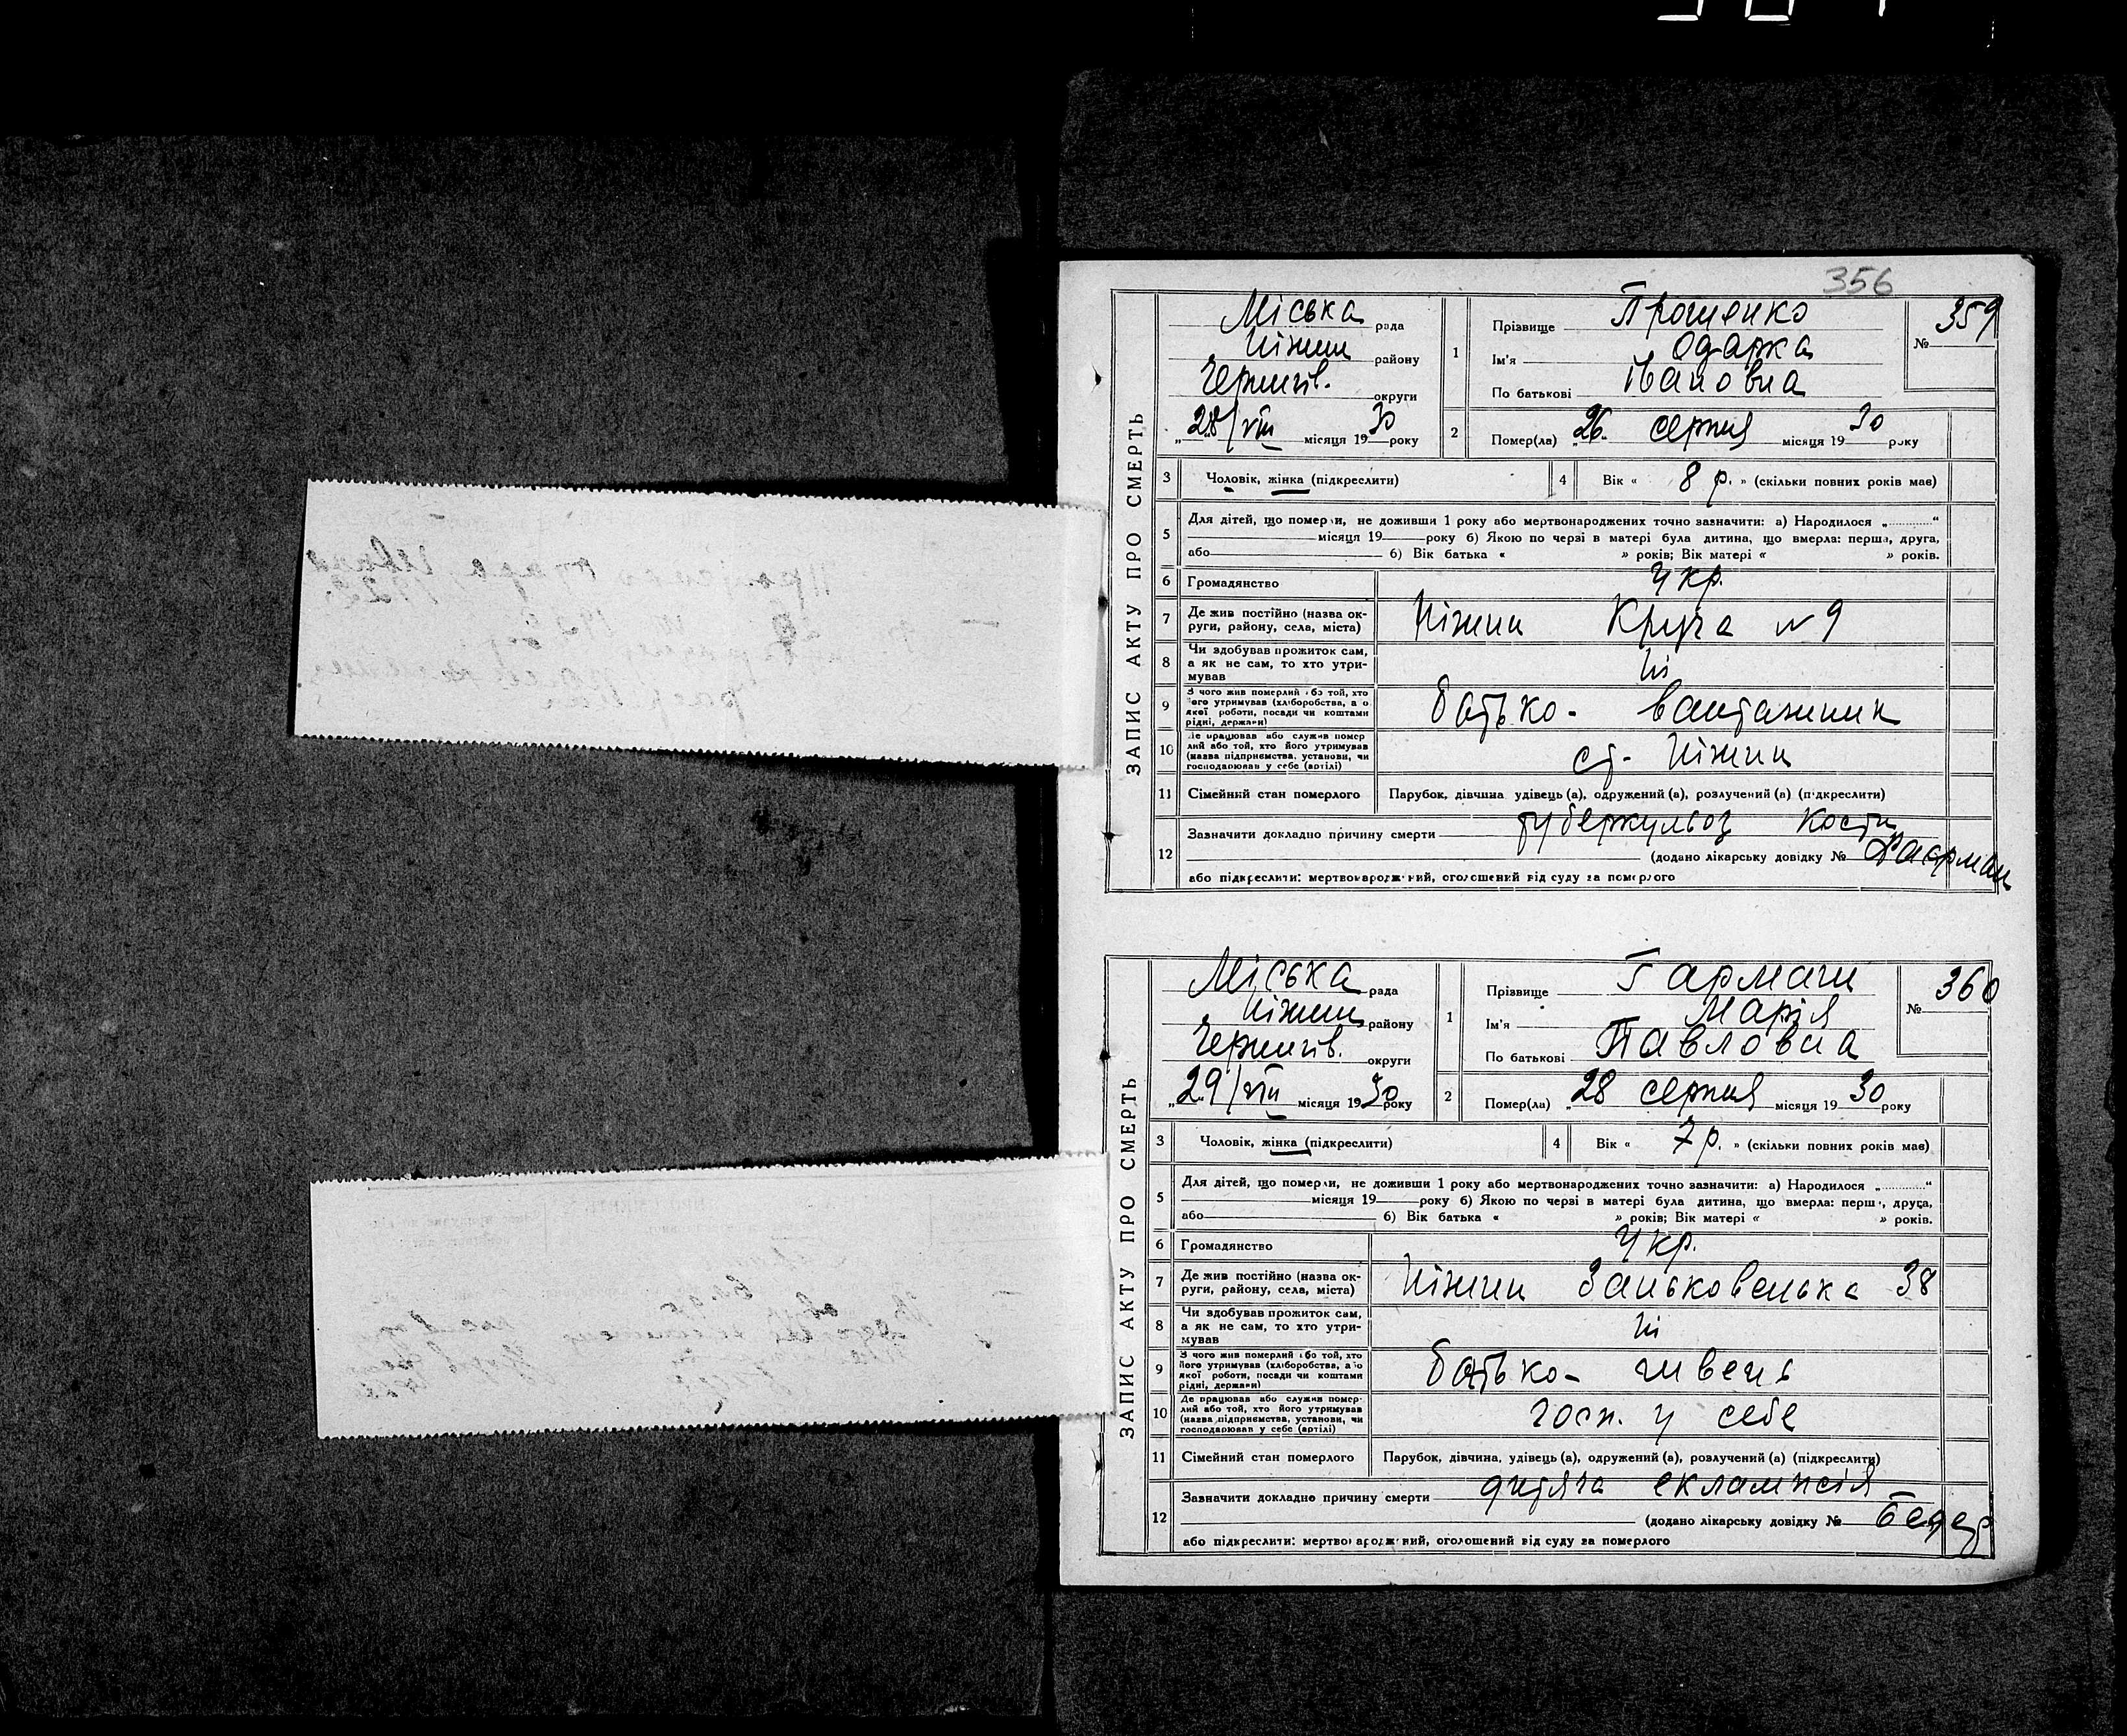 356
ЗАПИС АКТУ ПРО СМЕРТЬ
Міська рада
Ніжин району
Чернигів. округи
„28/VIII місяця 1930 року
1 Прізвище Прощенко
Ім'я Одарка
По батькові Івановна
№ 359
2 Помер(ла) „26 серпня місяця 1930 року
3 Чоловік, жінка (підкреслити) 4 Вік « 8 р. » (скільки повних років має)
5 Для дітей, що померли, не доживши 1 року або мертвонароджених точно зазначити: а) Народилося „ “
місяця 19 року б) Якою по черзі в матері була дитина, що вмерла: перша, друга,
або б) Вік батька « » років; Вік матері « » років.
6 Громадянство Укр.
7 Де жив постійно (назва ок-
руги, району, села, міста) Ніжин Круча №9
8 Чи здобував прожиток сам,
а як не сам, то хто утри-
мував Ні
9 З чого жив померлий або той, хто
його утримував (хліборобства, або
якої роботи, посади чи коштами
рідні, держави) батько - вантажник
10 Де працював або служив помер
лий або той, хто його утримував
(назва підприємства, установи, чи
господарював у себе (артілі) ст. Ніжин
11 Сімейний стан померлого Парубок, дівчина, удівець (а), одружений (а), розлучений (а) (підкреслити)
12 Зазначити докладно причину смерти туберкульоз кости
(додано лікарську довідку №
або підкреслити: мертвонароджений, оголошений від суду за померлого
ЗАПИС АКТУ ПРО СМЕРТЬ
Міська рада
Ніжин району
Чернигів. округи
„29/VIII місяця 1930 року
1 Прізвище Гармаш
Ім'я Марія
По батькові Павловна
№ 360
2 Помер(ла) „28 серпня місяця 1930 року
3 Чоловік, жінка (підкреслити) 4 Вік « 7 р. » (скільки повних років має)
5 Для дітей, що померли, не доживши 1 року або мертвонароджених точно зазначити: а) Народилося „ “
місяця 19 року б) Якою по черзі в матері була дитина, що вмерла: перш , друга,
або б) Вік батька « » років; Вік матері « » років.
6 Громадянство Укр.
7 Де жив постійно (назва ок-
руги, району, села, міста) Ніжин Заньковенька 38
8 Чи здобував прожиток сам,
а як не сам, то хто утри-
мував Ні
9 З чого жив померлий або той, хто
його утримував (хліборобства, або
якої роботи, посади чи коштами
рідні, держави) батько - швець
10 Де працював або служив помер-
лий або той, хто його утримував
(назва підприємства, установи, чи
господарював у себе (артілі) госп. у себе
11 Сімейний стан померлого Парубок, дівчина, удівець (а), одружений (а), розлучений (а) (підкреслити)
12 Зазначити докладно причину смерти дитяча еклампсія
(додано лікарську довідку №
або підкреслити: мертвонароджений, оголошений від суду за померлого